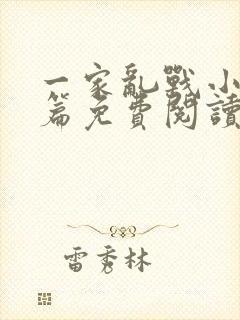 一家亂戰小
篇免費閱讀
雷秀林